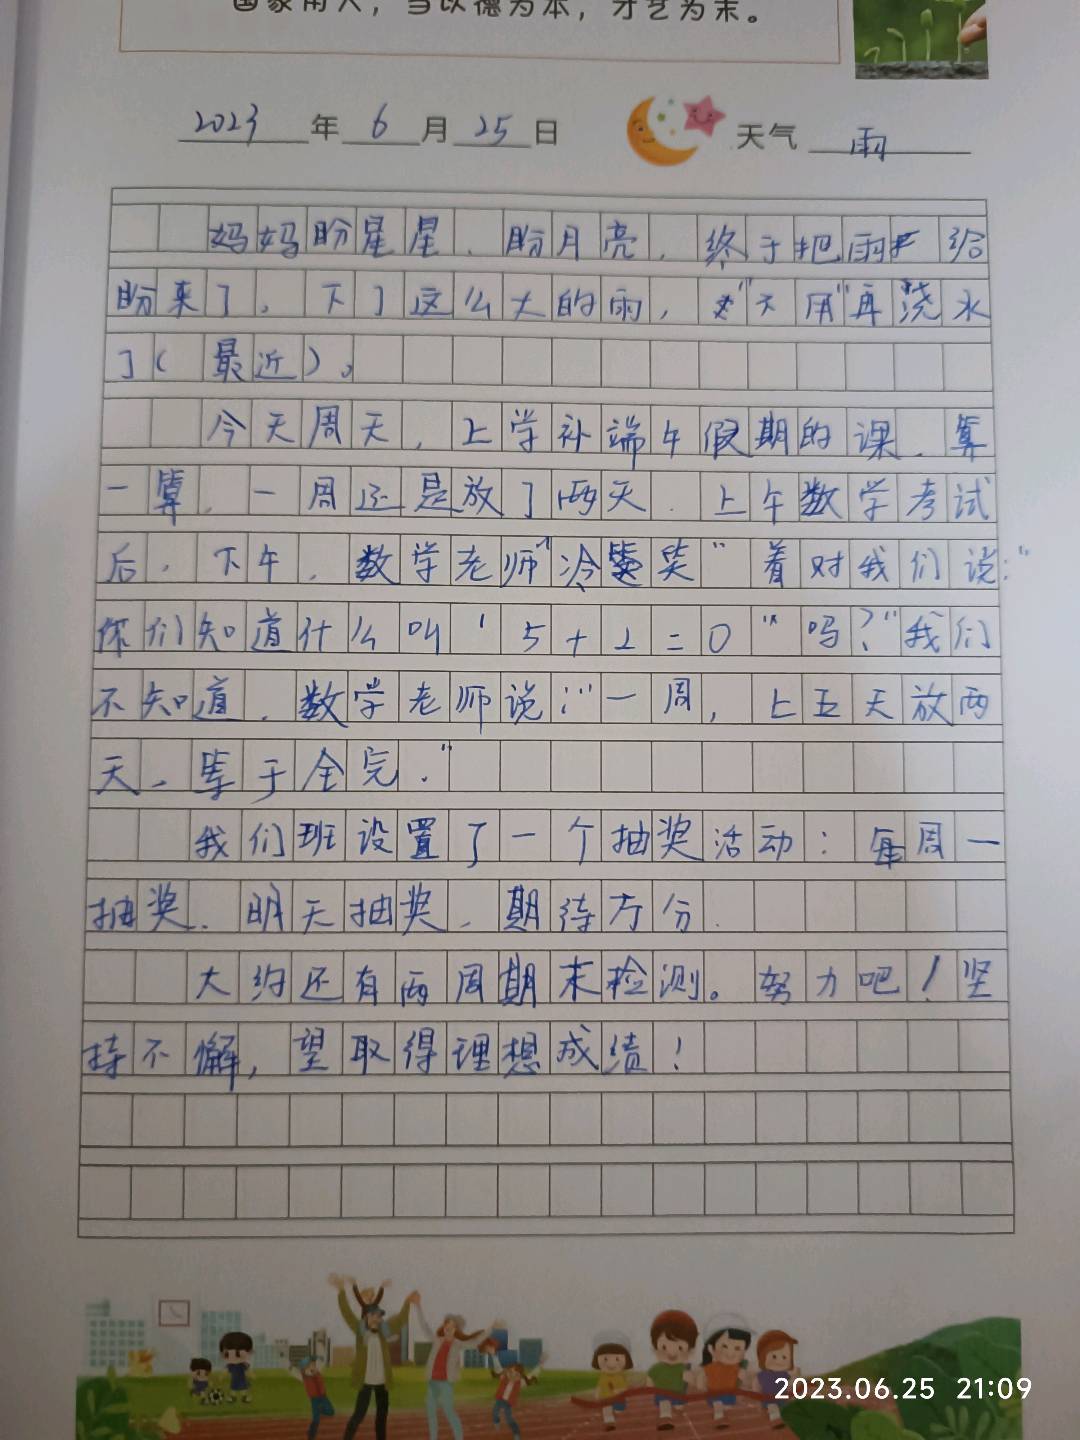 国家用人，当以德为本，才艺为末。
2023年6月25日 天气 雨
妈妈盼星星、盼月亮，终于把雨给
盼来了。下了这么大的雨，"不用"再浇水
了(最近)。
今天周天，上学补端午假期的课，算
一算，一周还是放了两天。上午数学考试
后，下午，数学老师"冷笑"着对我们说："
你们知道什么叫'5+2=0"吗？"我们
不知道，数学老师说："一周，上五天放两
天，等于全完."
我们班设置了一个抽奖活动：每周一
抽奖.明天抽奖，期待万分.
大约还有两周期末检测。努力吧！坚
持不懈，望取得理想成绩！
2023.06.25 21:09